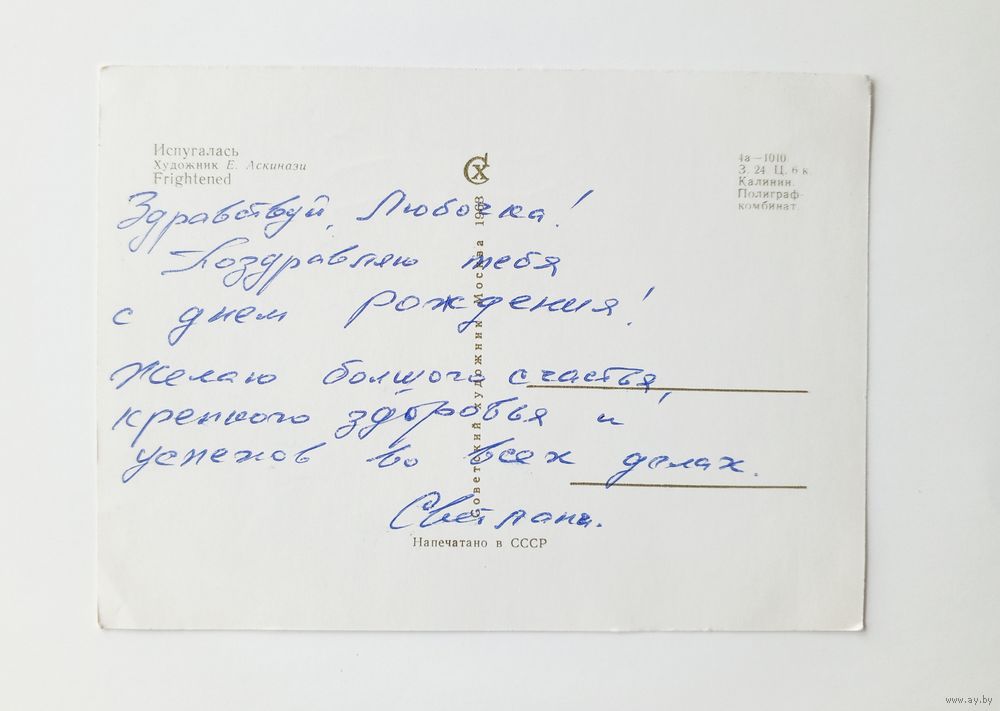 Испугалась
Художник Е. Аскинази
Frightened
СХ
4а—1010
З. 24 Ц. 6 к
Калинин.
Полиграф-
комбинат.
Здравствуй, Любочка!
Поздравляю тебя
с днем рождения!
Желаю болшого счастья,
крепкого здоровья и
успехов во всех делах.
Светлана.
Советский художник Москва 1968
Напечатано в СССР
www.ay.by